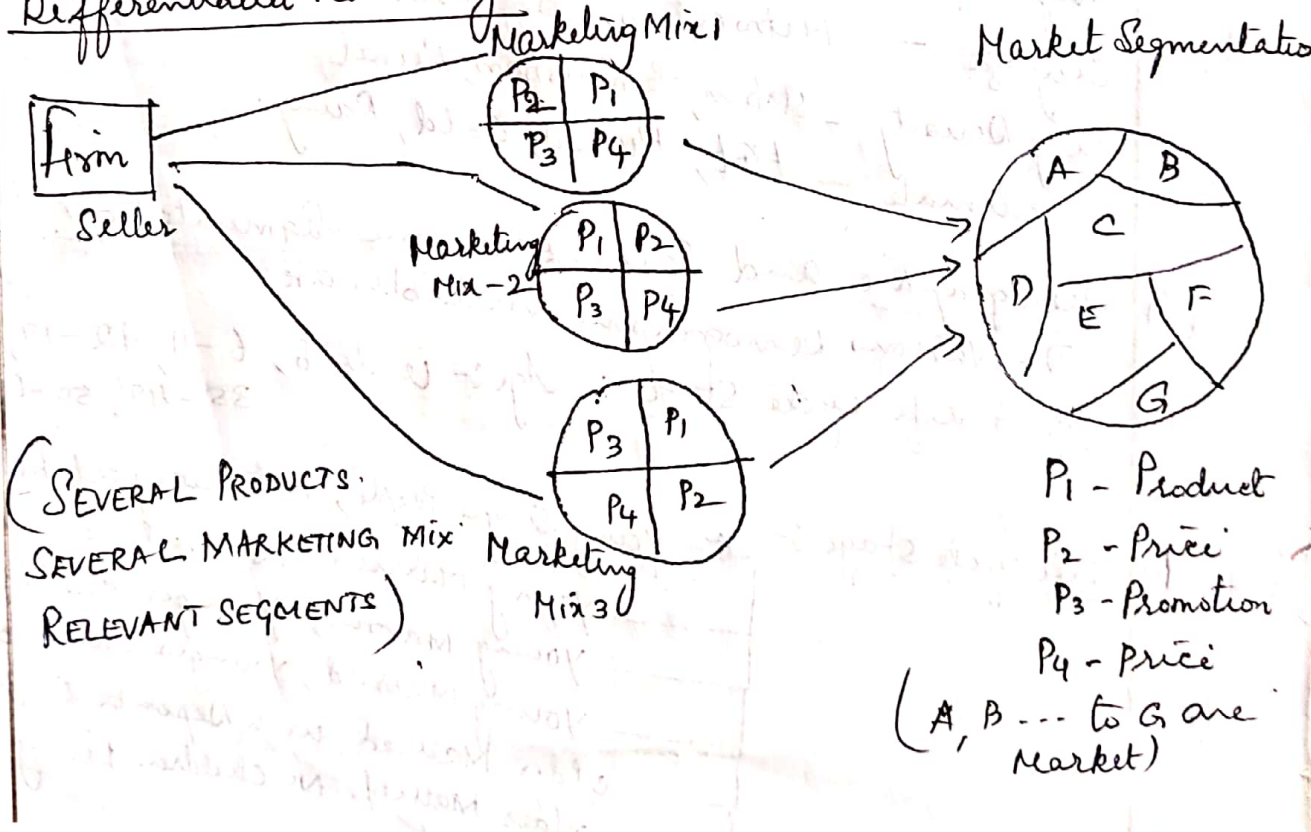 Marketing Mix 1
Market Segmentatio
Firm
Seller
P2 P1
P3 P4
Marketing
Mix-2
P1 P2
P3 P4
A B
C
D E F
G
P3 P1
P4 P2
Marketing
Mix 3
(SEVERAL PRODUCTS.
SEVERAL MARKETING MIX
RELEVANT SEGMENTS)
P1 - Product
P2 - Price
P3 - Promotion
P4 - Price
(A, B --- to G are
Market)